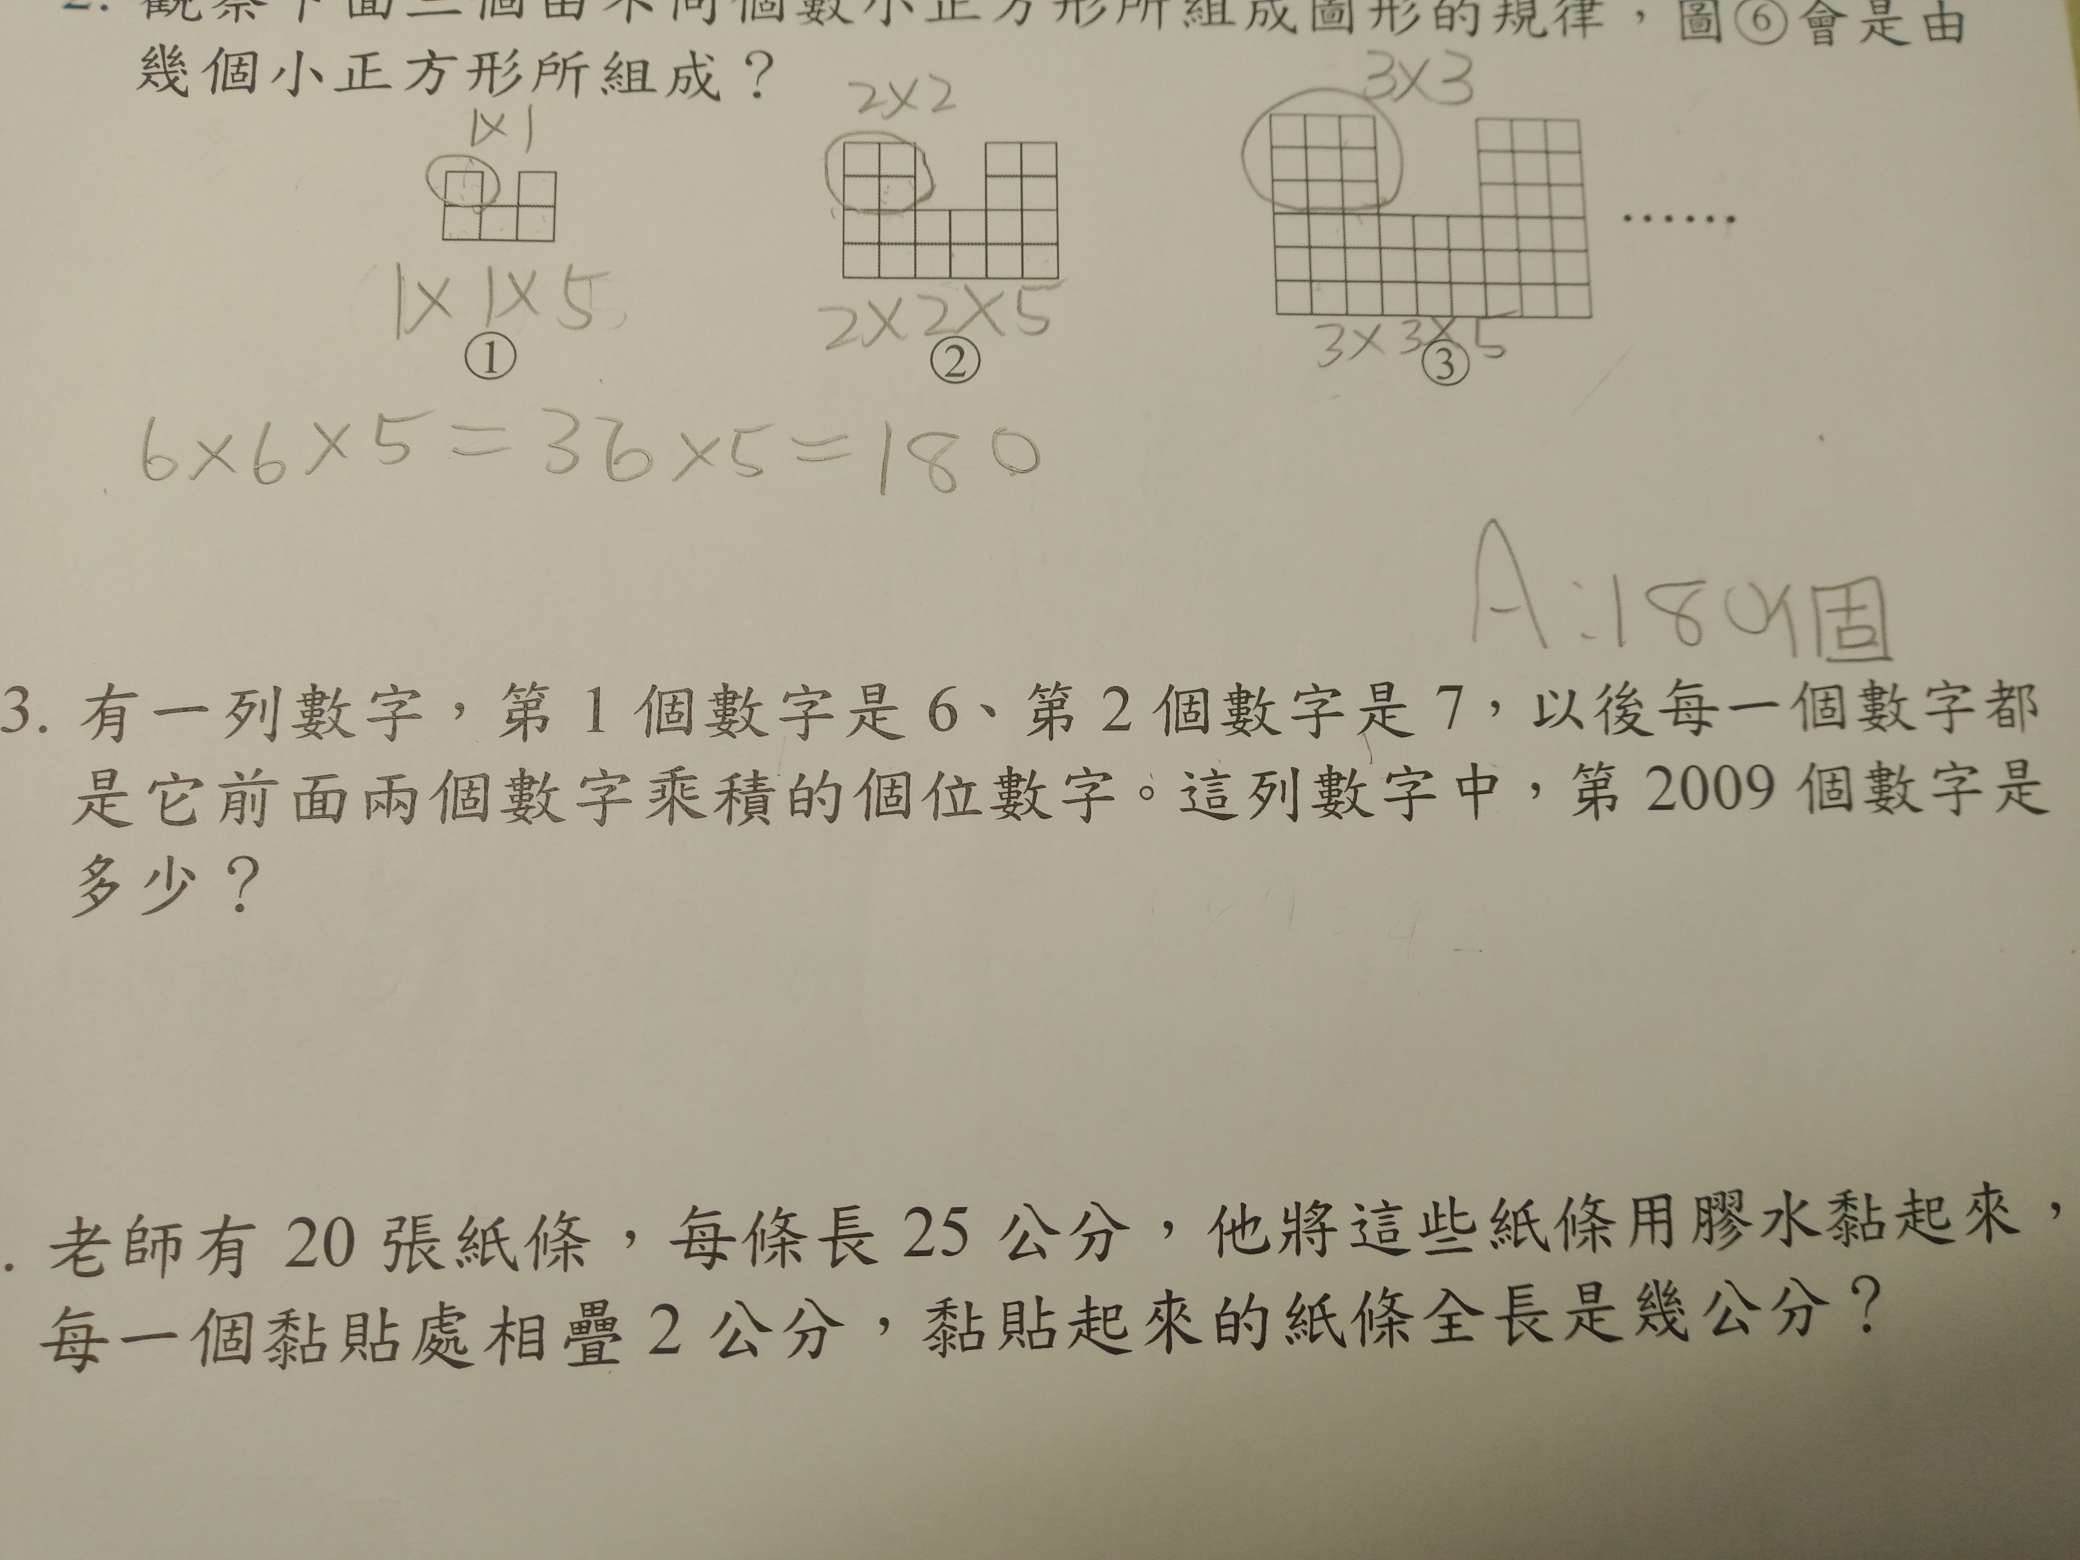 2. 觀察下面三個由不同個數小正方形所組成圖形的規律，圖⑥會是由
幾個小正方形所組成？
1×1
2×2
3×3
……
1×1×5
2×2×5
3×3×5
①
②
③
6×6×5=36×5=180
A:180個
3. 有一列數字，第 1 個數字是 6、第 2 個數字是 7，以後每一個數字都
是它前面兩個數字乘積的個位數字。這列數字中，第 2009 個數字是
多少？
. 老師有 20 張紙條，每條長 25 公分，他將這些紙條用膠水黏起來，
每一個黏貼處相疊 2 公分，黏貼起來的紙條全長是幾公分？